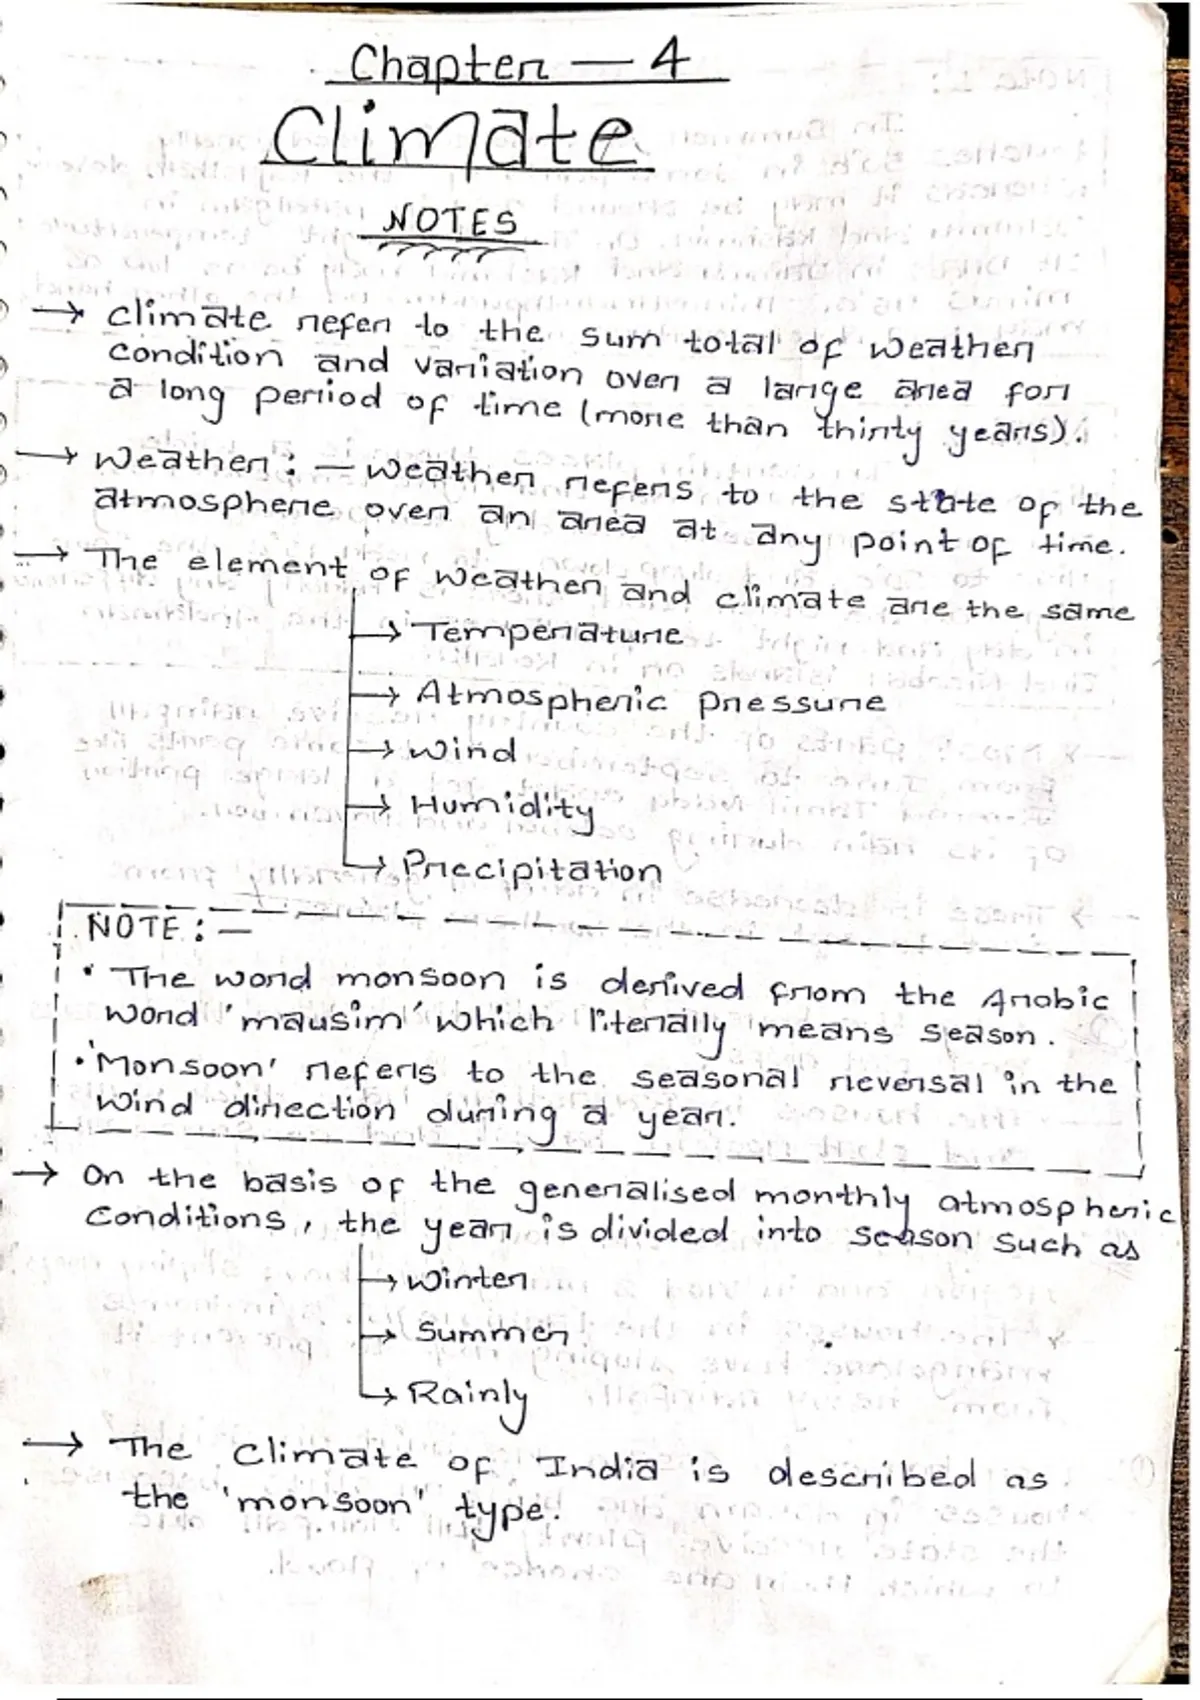 Chapter — 4
Climate
NOTES
→ climate refer to the sum total of weather
condition and variation over a large area for
a long period of time (more than thirty years).
→ Weather : — weather refers to the state of the
atmosphere over an area at any point of time.
→ The element of weather and climate are the same
→ Temperature
→ Atmospheric pressure
→ Wind
→ Humidity
→ Precipitation
NOTE : —
• The word monsoon is derived from the Arabic
word 'mausim' which literally means season.
• 'Monsoon' refers to the seasonal reversal in the
wind direction during a year.
→ On the basis of the generalised monthly atmospheric
conditions, the year is divided into season such as
→ Winter
→ Summer
→ Rainly
→ The Climate of India is described as
the 'monsoon' type.